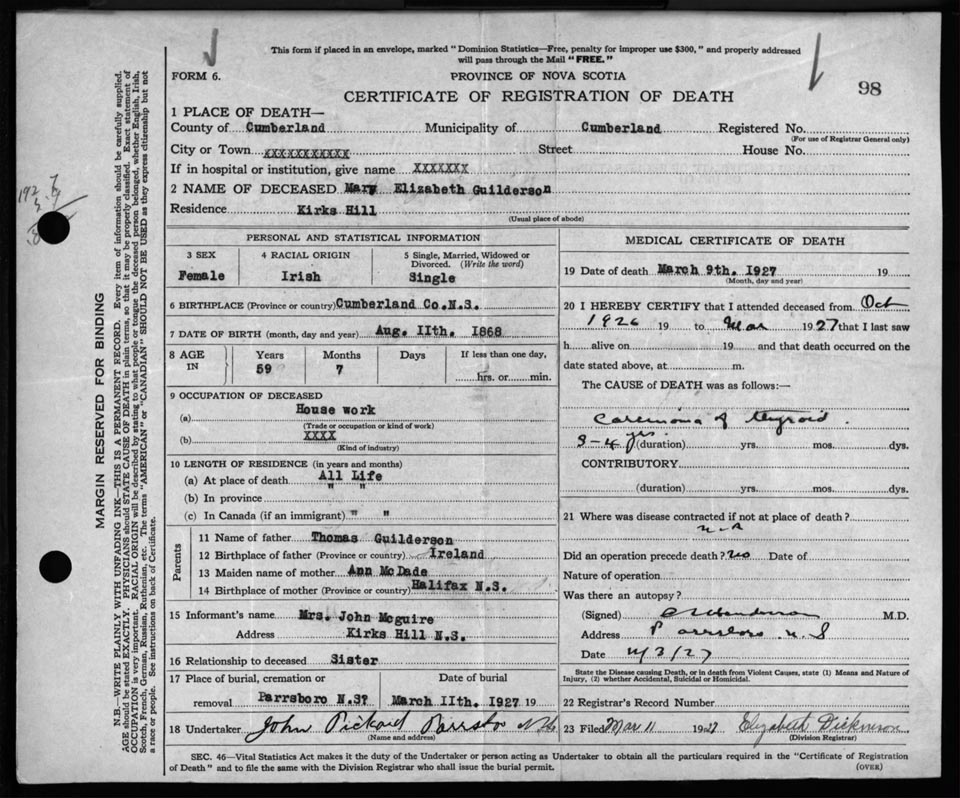 This form if placed in an envelope, marked "Dominion Statistics—Free, penalty for improper use $300," and properly addressed
will pass through the Mail "FREE."
FORM 6. PROVINCE OF NOVA SCOTIA
CERTIFICATE OF REGISTRATION OF DEATH 98
1 PLACE OF DEATH—
County of Cumberland Municipality of Cumberland Registered No.
(For use of Registrar General only)
City or Town XXXXXXXXXXX Street House No.
If in hospital or institution, give name XXXXXXX
2 NAME OF DECEASED Mary Elizabeth Guilderson
Residence Kirks Hill
(Usual place of abode)
PERSONAL AND STATISTICAL INFORMATION
3 SEX 4 RACIAL ORIGIN 5 Single, Married, Widowed or
Divorced. (Write the word)
Female Irish Single
6 BIRTHPLACE (Province or country) Cumberland Co.N.S.
7 DATE OF BIRTH (month, day and year) Aug. IIth. 1868
8 AGE IN Years Months Days If less than one day,
59 7 hrs. or min.
9 OCCUPATION OF DECEASED
(a) House work
(Trade or occupation or kind of work)
(b) XXXX
(Kind of industry)
10 LENGTH OF RESIDENCE (in years and months)
(a) At place of death All Life
(b) In province " "
(c) In Canada (if an immigrant) " "
Parents
11 Name of father Thomas Guilderson
12 Birthplace of father (Province or country) Ireland
13 Maiden name of mother Ann McDade
14 Birthplace of mother (Province or country) Halifax N.S.
15 Informant's name Mrs. John Mcguire
Address Kirks Hill N.S.
16 Relationship to deceased Sister
17 Place of burial, cremation or Date of burial
removal Parrsboro N.S? March IIth. 1927 19
18 Undertaker John Pickard Parrsboro N.S.
(Name and address)
MEDICAL CERTIFICATE OF DEATH
19 Date of death March 9th. 1927 19
(Month, day and year)
20 I HEREBY CERTIFY that I attended deceased from Oct
1926 19 to Mar 1927 that I last saw
h alive on 19 and that death occurred on the
date stated above, at m.
The CAUSE of DEATH was as follows:—
Carcinoma of thyroid.
3-4 yrs (duration) yrs. mos. dys.
CONTRIBUTORY
(duration) yrs. mos. dys.
21 Where was disease contracted if not at place of death?
Did an operation precede death? No Date of
Nature of operation
Was there an autopsy?
(Signed) M.D.
Address Parrsboro N.S
Date 11/3/27
State the Disease causing Death, or in death from Violent Causes, state (1) Means and Nature of
Injury, (2) whether Accidental, Suicidal or Homicidal.
22 Registrar's Record Number
23 Filed Mar 11 1927 Elizabeth Dickinson
(Division Registrar)
SEC. 46—Vital Statistics Act makes it the duty of the Undertaker or person acting as Undertaker to obtain all the particulars required in the "Certificate of Registration
of Death" and to file the same with the Division Registrar who shall issue the burial permit. (OVER)
MARGIN RESERVED FOR BINDING
N.B.—WRITE PLAINLY WITH UNFADING INK—THIS IS A PERMANENT RECORD. Every item of information should be carefully supplied.
AGE should be stated EXACTLY. PHYSICIANS should STATE CAUSE OF DEATH in plain terms, so that it may be properly classified. Exact statement of
OCCUPATION is very important. RACIAL ORIGIN will be described by stating to what people or tongue the deceased person belonged, whether English, Irish,
Scotch, French, German, Russian, Ruthenian, etc. The terms "AMERICAN" or "CANADIAN" SHOULD NOT BE USED as they express citizenship but not
a race or people. See instructions on back of Certificate.